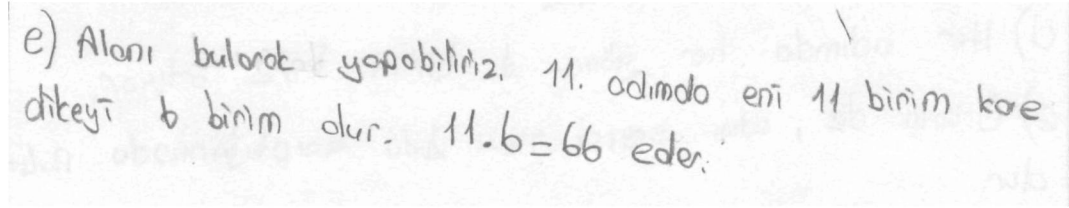 e) Alanı bularak yapabiliriz. 11. adımda eni 11 birim kare
dikeyi 6 birim olur. 11.6=66 eder.